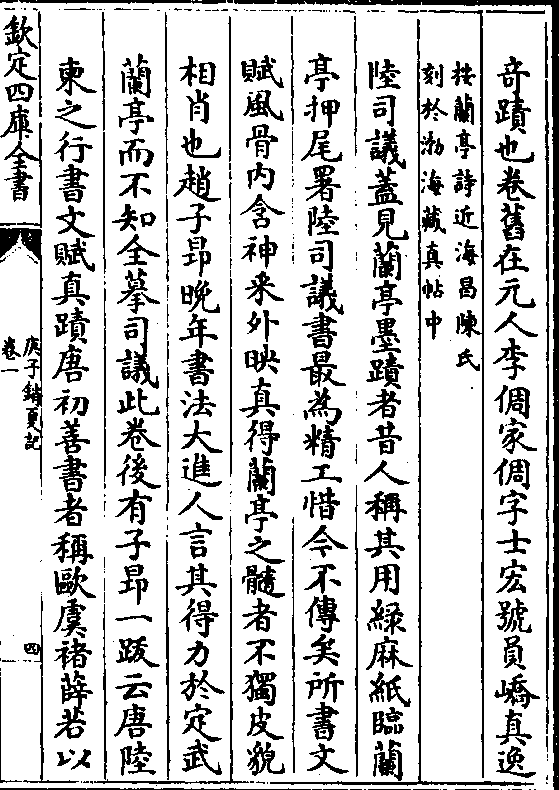 奇蹟也卷舊在元人李倜家倜字士宏號員嶠真逸
按蘭亭詩近海昌陳氏
刻於渤海藏真帖中
陸司議蓋見蘭亭墨蹟者昔人稱其用綠麻紙臨蘭
亭押尾署陸司議書最為精工惜今不傳矣所書文
賦風骨内含神采外映真得蘭亭之髓者不獨皮貌
相肖也趙子昂晚年書法大進人言其得力於定武
蘭亭而不知全摹司議此卷後有子昂一跋云唐陸
柬之行書文賦真蹟唐初善書者稱歐虞褚薛若以
欽定四庫全書
庚子銷夏記
卷一
四